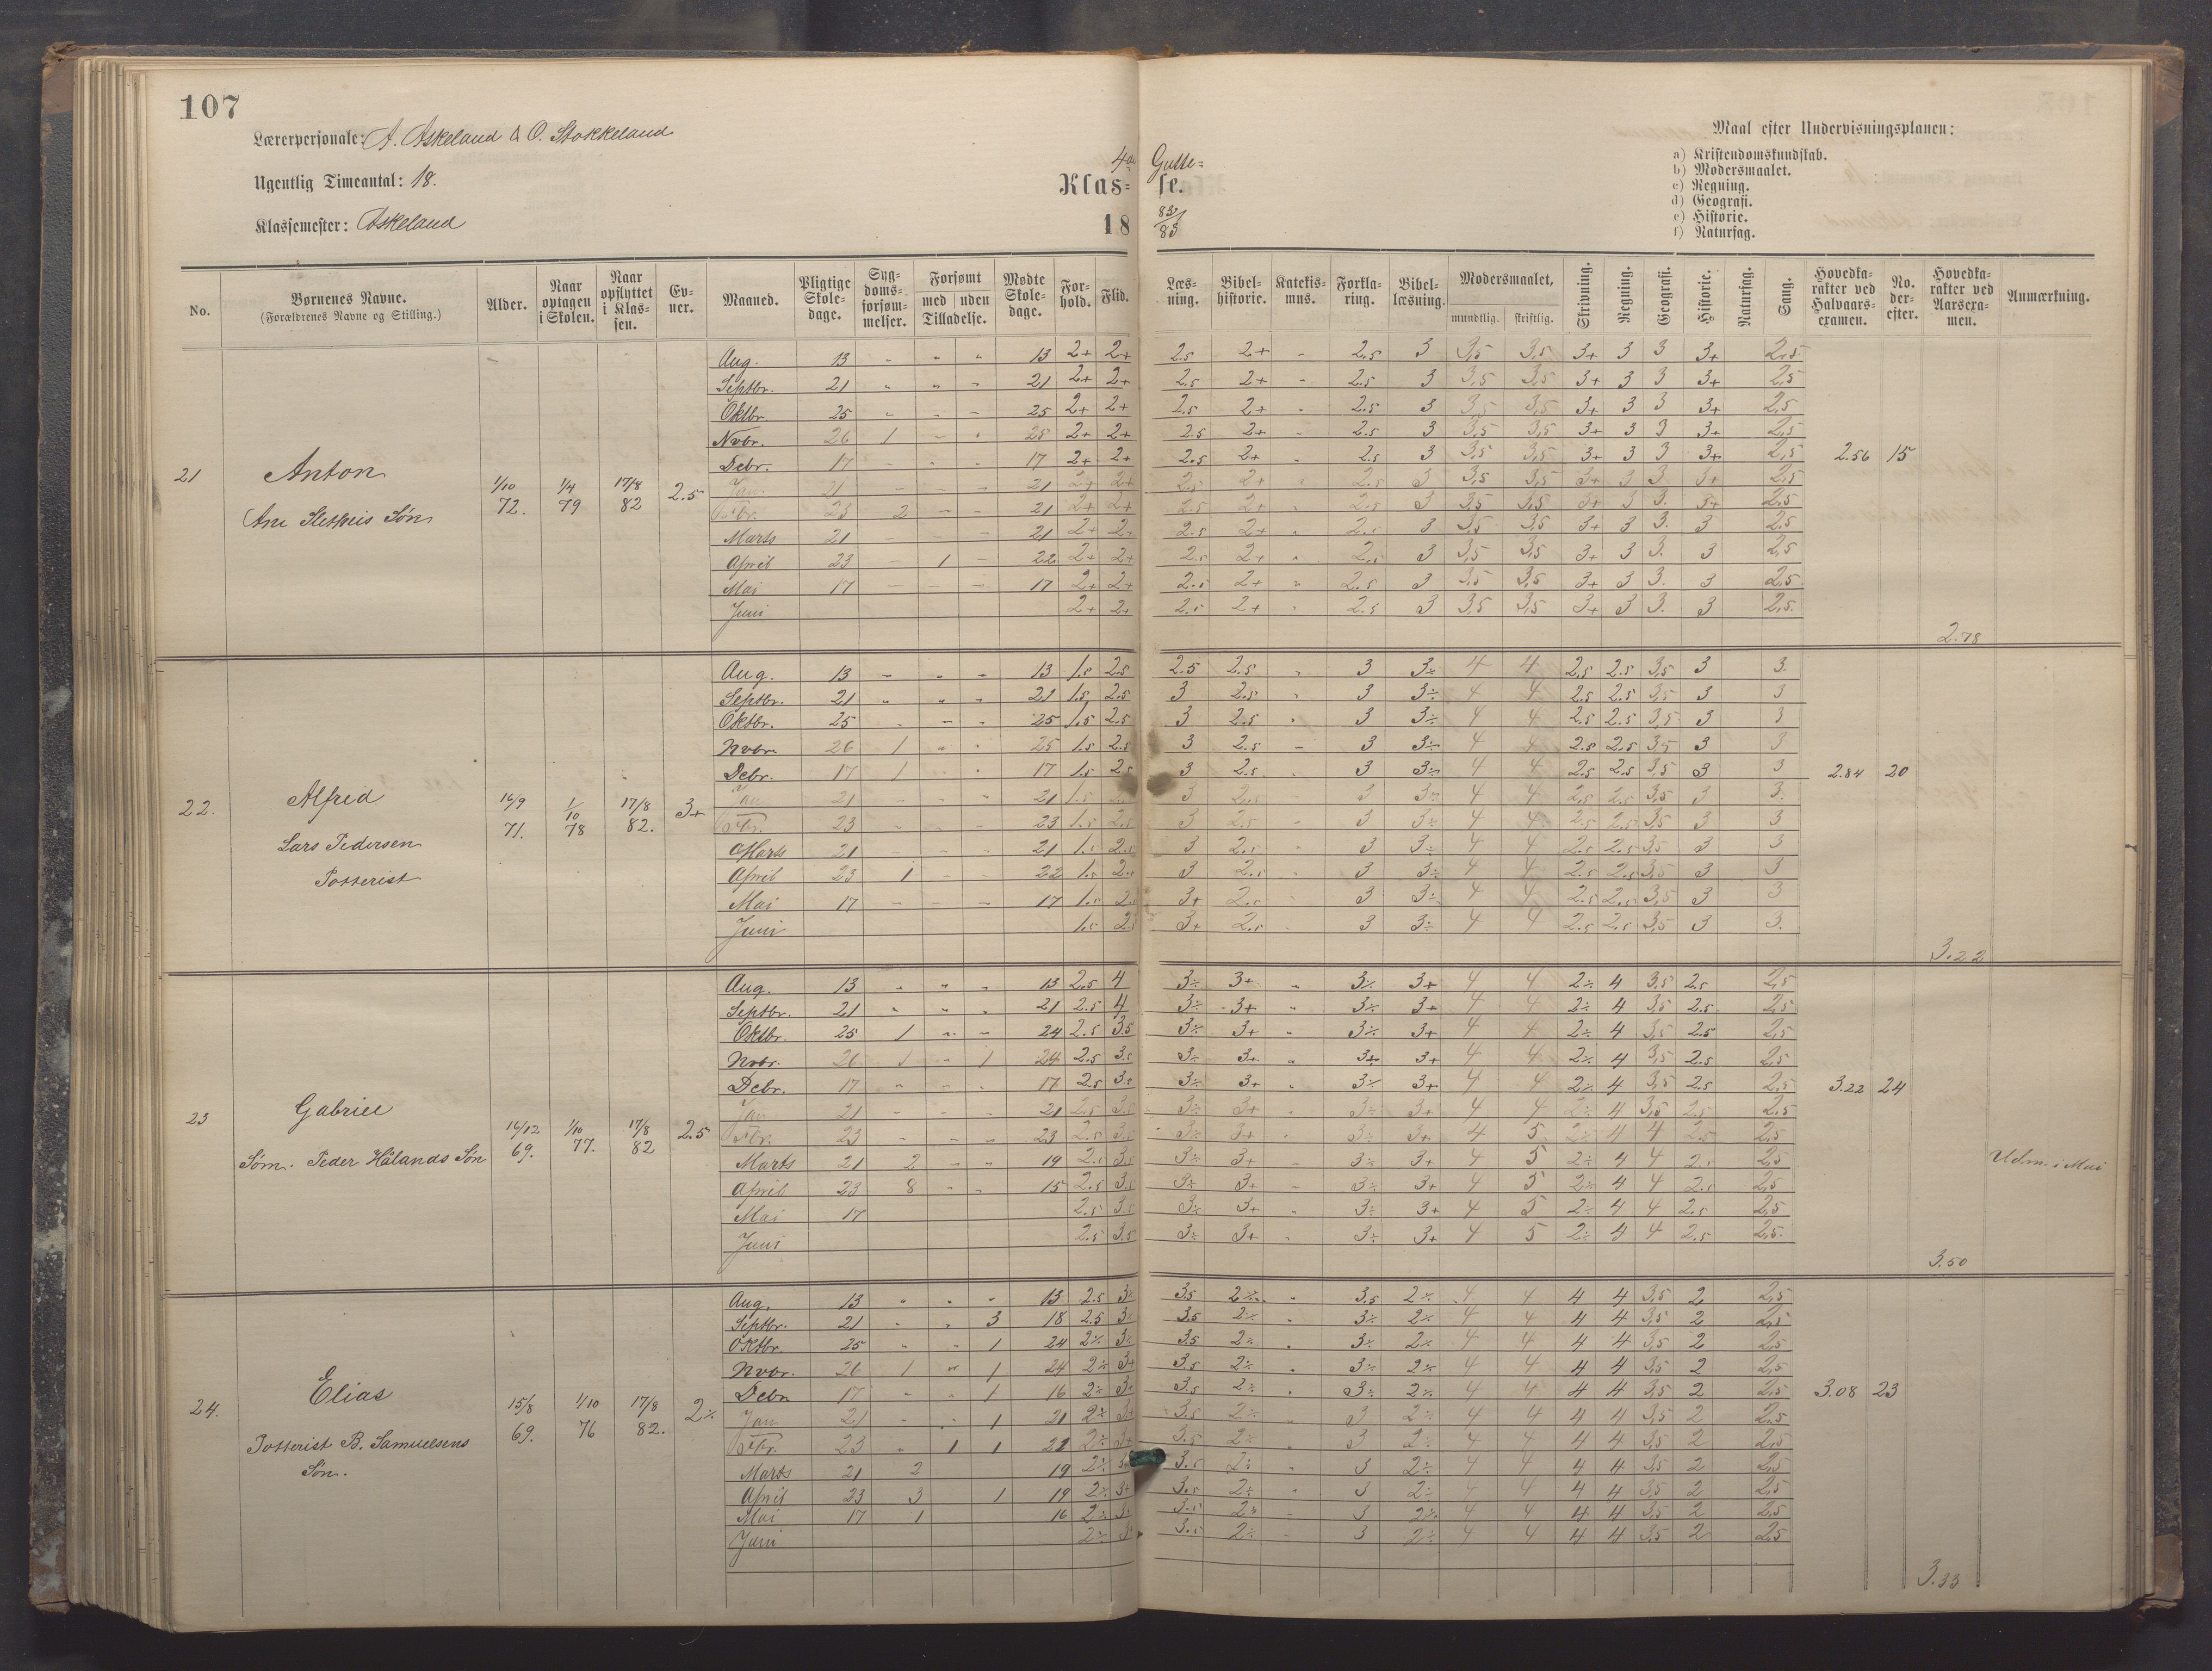 107
Lærerpersonale: A. Askeland & O. Stokkeland
Ugentlig Timeantal: 18.
Klassemester: Askeland
4de Gutte=
Klas= se.
18 82/83
Maal efter Undervisningsplanen:
a) Kristendomskundskab.
b) Modersmaalet.
c) Regning.
d) Geografi.
e) Historie.
f) Naturfag.
No. Børnenes Navne. (Forældrenes Navne og Stilling.) Alder. Naar optagen i Skolen. Naar opflyttet i Klassen. Evner. Maaned. Pligtige Skoledage. Sygdomsforsømmelser. Forsømt med uden Tilladelse. Mødte Skoledage. Forhold. Flid. Læsning. Bibelhistorie. Katekismus. Forklaring. Bibellæsning. Modersmaalet, mundtlig. skriftlig. Skrivning. Regning. Geografi. Historie. Naturfag. Sang. Hovedkarakter ved Halvaarsexamen. No. derefter. Hovedkarakter ved Aarsexamen. Anmærkning.
21 Anton
Søn
1/10 72. 1/4 79 17/8 82 2.5
Aug. 13 " " " 13 2+ 2+ 2.5 2+ " 2.5 3 3,5 3,5 3+ 3 3 3+ 2,5
Septbr. 21 " " " 21 2+ 2+ 2.5 2+ " 2.5 3 3,5 3,5 3+ 3 3 3+ 2,5
Oktbr. 25 " - - 25 2+ 2+ 2.5 2+ " 2.5 3 3,5 3,5 3+ 3 3 3+ 2,5
Nvbr. 26 1 - " 25 2+ 2+ 2.5 2+ " 2.5 3 3,5 3,5 3+ 3 3 3+ 2,5
Debr. 17 - " " 17 2+ 2+ 2.5 2+ " 2.5 3 3,5 3,5 3+ 3 3 3+ 2,5 2.56 15
Jan. 21 - - - 21 2+ 2+ 2.5 2+ " 2.5 3 3,5 3,5 3+ 3 3 3+ 2,5
Febr. 23 2 - - 21 2+ 2+ 2.5 2+ " 2.5 3 3,5 3,5 3+ 3 3. 3+ 2,5
Marts 21 - - - 21 2+ 2+ 2.5 2+ " 2.5 3 3,5 3,5 3+ 3 3. 3 2,5
April 23 - 1 - 22 2+ 2+ 2.5 2+ " 2.5 3 3,5 3,5 3+ 3 3. 3 2,5
Mai 17 - - - 17 2+ 2+ 2.5 2+ " 2.5 3 3,5 3,5 3+ 3 3. 3 2,5
Juni 2+ 2+ 2.5 2+ " 2.5 3 3,5 3,5 3+ 3 3. 3 2,5.
2.78
22. Alfred
Lars Pedersen
Potterist
16/9 71. 1/10 78 17/8 82. 3+
Aug. 13 - " - 13 1.5 2.5 2.5 2.5 " 3 3÷ 4 4 2.5 2.5 3,5 3 3.
Septbr. 21 " " " 21 1.5 2.5 3 2.5 " 3 3÷ 4 4 2.5 2.5 3,5 3 3
Oktbr. 25 - - - 25 1.5 2.5 3 2.5 " 3 3÷ 4 4 2.5 2.5 3,5 3 3
Nvbr. 26 1 " " 25 1.5 2.5 3 2.5 - 3 3÷ 4 4 2.5 2.5 3,5 3 3
Debr. 17 1 - " 17 1.5 2.5 3 2.5 " 3 3÷ 4 4 2.5 2.5 3,5 3 3 2.84 20
Jan. 21 - - " 21 1.5 3 2.5 " 3 3÷ 4 4 2.5 2.5 3,5 3 3.
Febr. 23 - - - 23 1.5 2.5 3 2.5 " 3 3÷ 4 4 2.5 2.5 3,5 3 3
Marts 21 - - - 21 1.5 2.5 3 2.5 " 3 3÷ 4 4 2.5 2.5 3,5 3 3
April 23 1 - - 22 1.5 2.5 3 2.5 " 3 3÷ 4 4 2.5 2.5 3,5 3 3
Mai 17 - - - 17 1.5 2.5 3+ 2.5 " 3 3÷ 4 4 2.5 2.5 3,5 3 3
Juni 1.5 2.5 3+ 2.5 " 3 3÷ 4 4 2.5 2.5 3,5 3 3.
3.22
23 Gabriel
Søm. Peder Hålands Søn
16/12 69. 1/10 77. 17/8 82 2.5
Aug. 13 " " " 13 2.5 4 3÷ 3+ " 3÷ 3+ 4 4 2÷ 4 3,5 2.5 2,5
Septbr. 21 " " " 21 2.5 4 3÷ 3+ " 3÷ 3+ 4 4 2÷ 4 3,5 2.5 2,5
Oktbr. 25 1 " - 24 2.5 3.5 3÷ 3+ " 3÷ 3+ 4 4 2÷ 4 3,5 2.5 2,5
Nvbr. 26 1 - 1 24 2.5 3.5 3÷ 3+ " 3+ 3+ 4 4 2÷ 4 3,5 2.5 2,5
Debr. 17 " - " 17 2.5 3.5 3÷ 3+ " 3÷ 3+ 4 4 2÷ 4 3,5 2.5 2,5 3.22 24
Jan 21 - - - 21 2.5 3.5 3÷ 3+ " 3÷ 3+ 4 4 2÷ 4 3,5 2.5 2,5
Febr. 23 - - - 23 2.5 3.5 3÷ 3+ " 3÷ 3+ 4 5 2÷ 4 4 2.5 2,5
Marts 21 2 - - 19 2.5 3.5 3÷ 3+ - 3÷ 3+ 4 5 2÷ 4 4 2.5 2,5 Udm. i Mai
April 23 8 - - 15 2.5 3.5 3÷ 3+ - 3÷ 3+ 4 5 2÷ 4 4 2.5 2,5
Mai 17 2.5 3.5 3÷ 3+ " 3÷ 3+ 4 5 2÷ 4 4 2.5 2,5
Juni 2.5 3.5 3÷ 3+ " 3÷ 3+ 4 5 2÷ 4 4 2.5 2,5.
3.50
24. Elias
Potterist B. Samuelsens
Søn.
15/8 69. 1/10 76 17/8 82. 2÷
Aug. 13 " " " 13 2.5 3÷ 3.5 2÷ " 3.5 2÷ 4 4 4 4 3,5 2 2,5
Septbr. 21 " " 3 18 2.5 3÷ 3.5 2÷ " 3÷ 2÷ 4 4 4 4 3,5 2 2,5
Oktbr. 25 " " 1 24 2÷ 3÷ 3.5 2÷ " 3÷ 2÷ 4 4 4 4 3,5 2 2,5
Nvbr. 26 1 " 1 24 2÷ 3+ 3.5 2÷ " 3÷ 2÷ 4 4 4 4 3,5 2 2,5
Debr 17 " " 1 16 2÷ 3+ 3.5 2÷ " 3÷ 2÷ 4 4 4 4 3,5 2 2,5 3.08 23
Jan 21 " " 1 21 2÷ 3+ 3.5 2÷ " 3 2÷ 4 4 4 4 3,5 2 2,5
Febr. 23 " 1 1 21 2÷ 3+ 3.5 2÷ " 3 2÷ 4 4 4 4 3,5 2 2,5
Marts 21 2 19 2÷ 3+ 3.5 2÷ " 3 2÷ 4 4 4 4 3,5 2 2,5
April 23 3 1 19 2÷ 3+ 3.5 2÷ " 3 2÷ 4 4 4 4 3,5 2 2,5
Mai 17 1 16 2÷ 3+ 3.5 2÷ " 3 2÷ 4 4 4 4 3,5 2 2,5
Juni 2÷ 3+ 3.5 2÷ " 3 2÷ 4 4 4 4 3,5 2 2,5
3.33